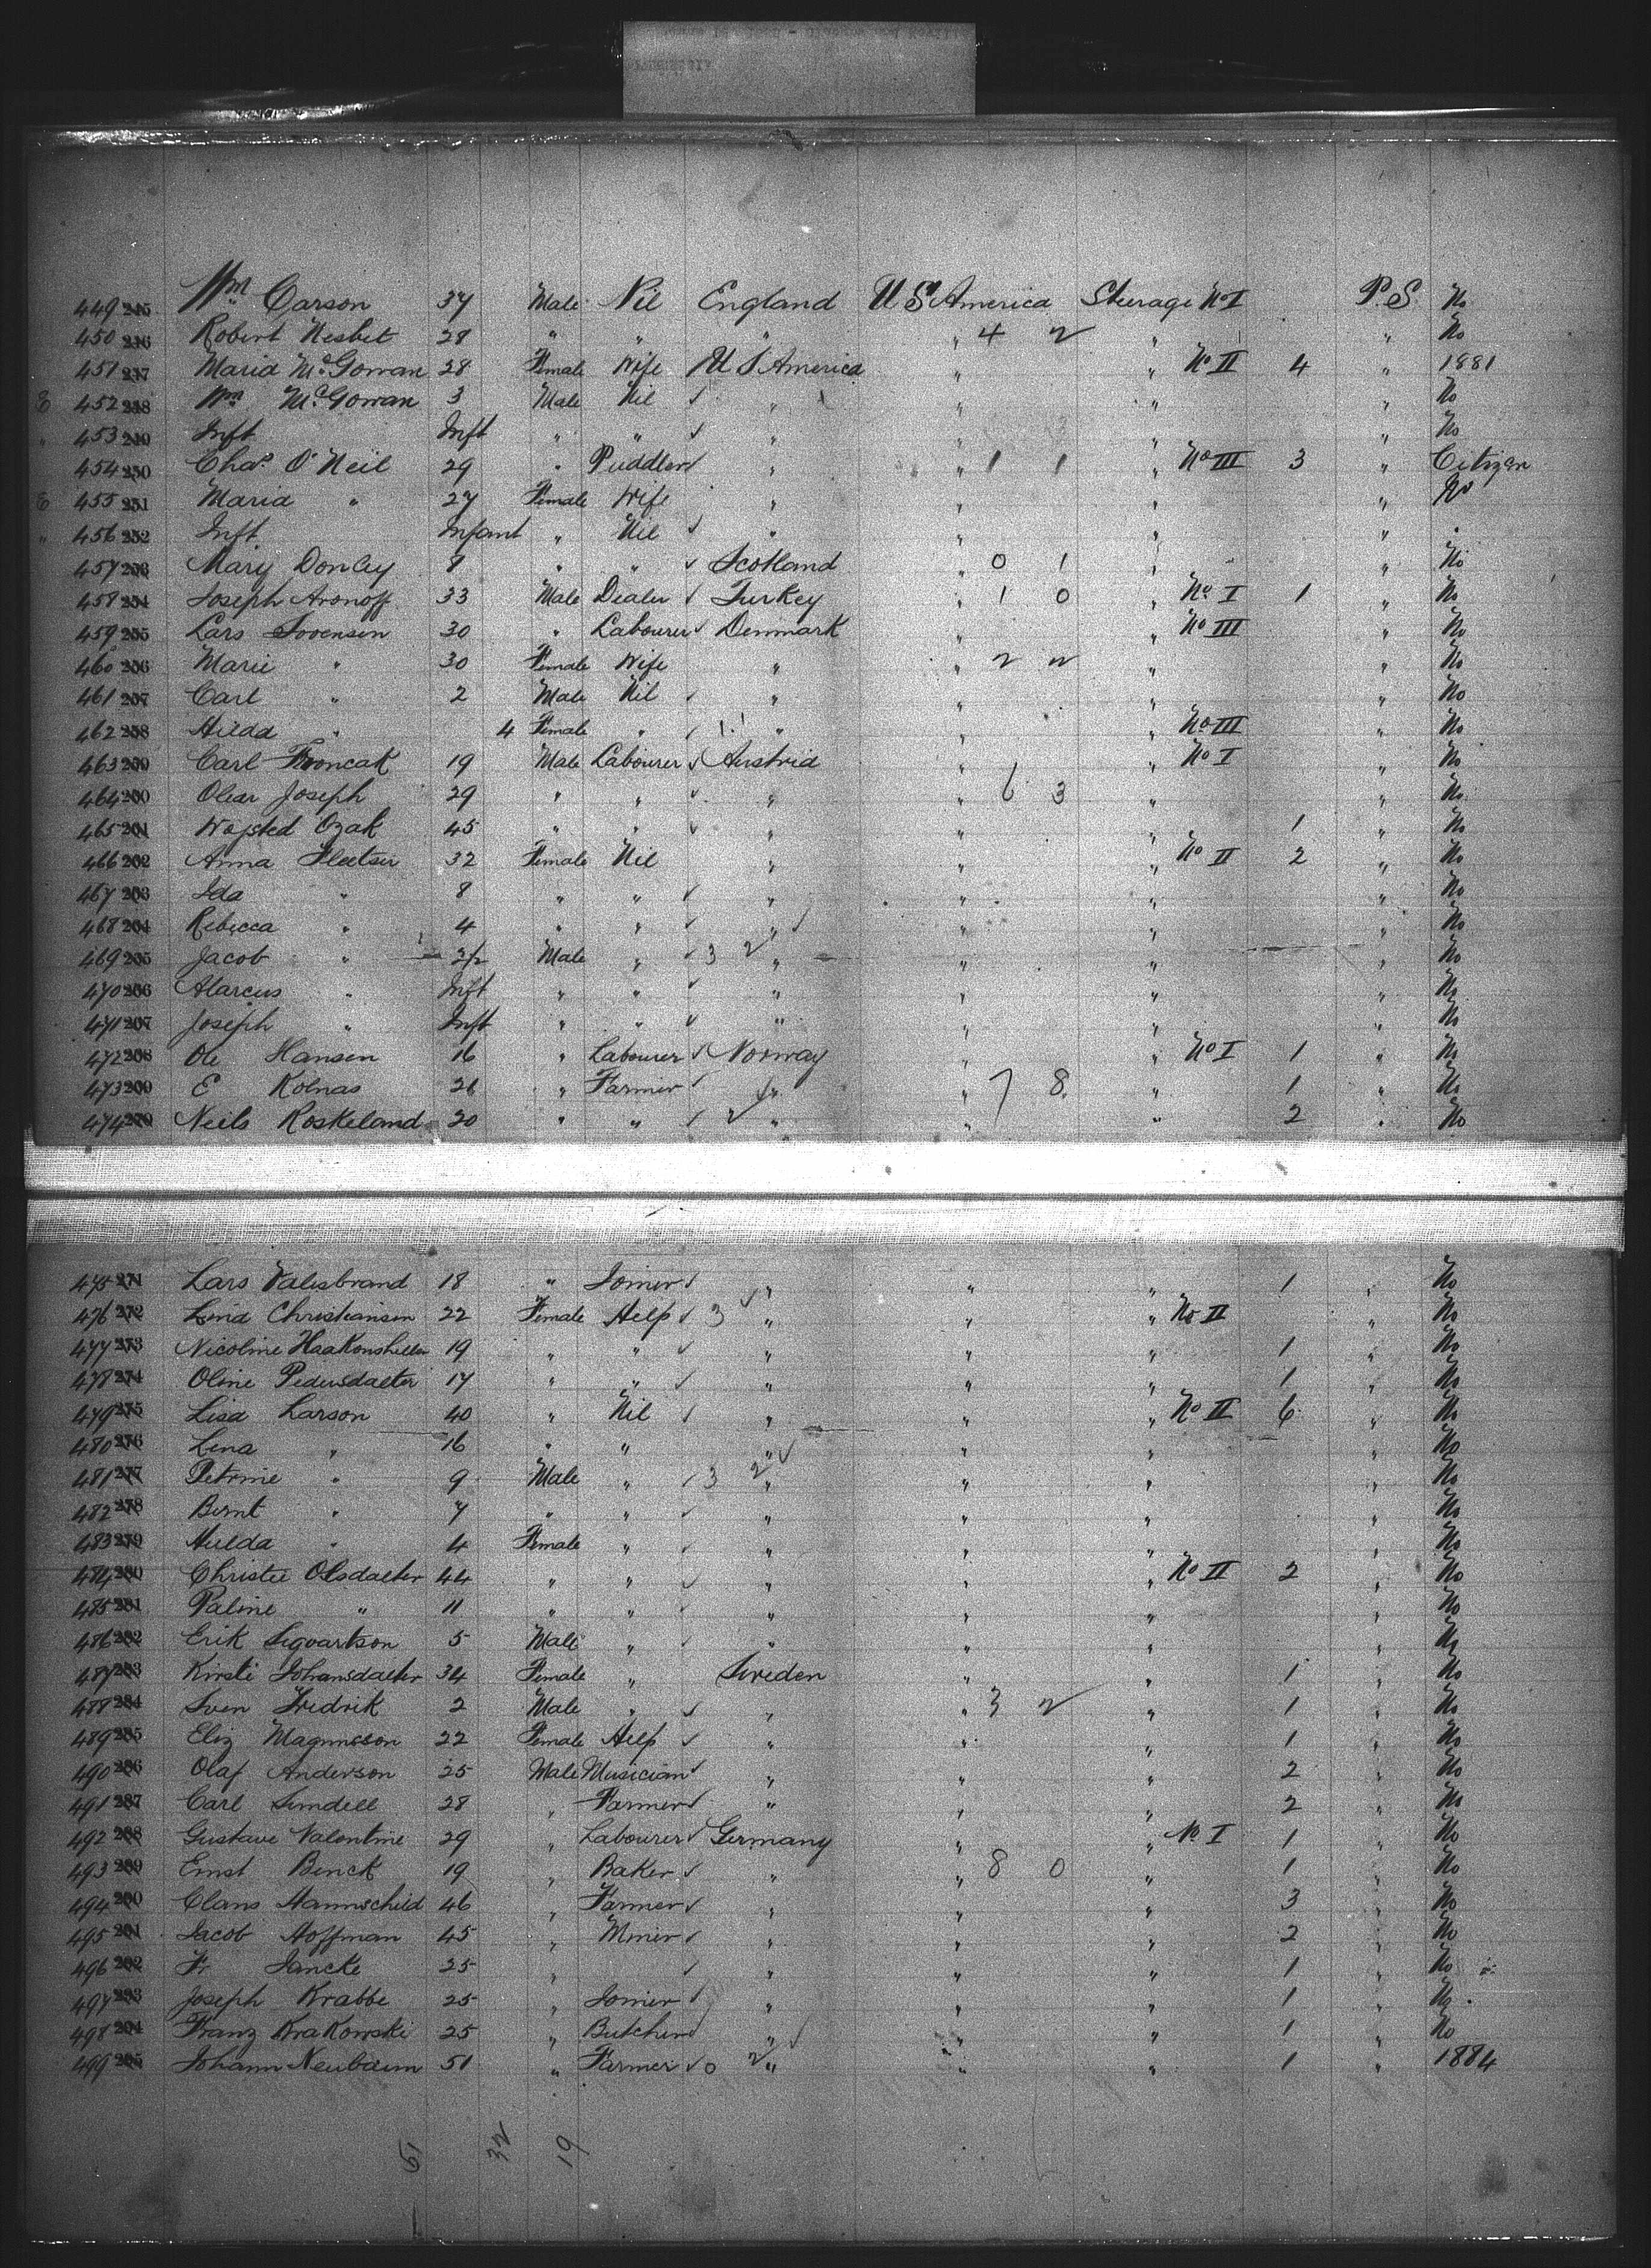 449 245 Wm Carson 37 Male Nil England U S America Steerage No I P. S No
450 246 Robert Nesbet 28 " " " " 4 2 " " No
451 247 Maria McGowan 28 Female Wife U S America " " No II 4 " 1881
E 452 248 Wm McGowan 3 Male Nil " " " " No
" 453 249 Inft Inft " " " " " " No
454 250 Chas O'Neil 29 " Puddler " " 1 1 " No III 3 " Citizen
E 455 251 Maria " 27 Female Wife " " " " No
" 456 252 Inft Infant " Nil " " " " "
457 253 Mary Donley 8 " " Scotland " 0 1 " " No
458 254 Joseph Aronoff 33 Male Dealer Turkey " 1 0 " No I 1 " No
459 255 Lars Sorensen 30 " Labourer Denmark " " No III " No
460 256 Marie " 30 Female Wife " " 2 2 " " No
461 257 Carl " 2 Male Nil " " " " No
462 258 Hilda " 4 Female " " " " No III " No
463 259 Carl 19 Male Labourer Austria " " No I " No
464 260 Joseph 29 " " " " 6 3 " " No
465 261 45 " " " " " 1 " No
466 262 Anna 32 Female Nil " " " No II 2 " No
467 263 Ida " 8 " " " " " " No
468 264 Rebecca " 4 " " " " " " No
469 265 Jacob " 2½ Male " 3 2 " " " " No
470 266 Marcus " Inft " " " " " " No
471 267 Joseph " Inft " " " " " " No
472 268 Ole Hansen 16 " Labourer Norway " " No I 1 " No
473 269 E Kolnas 26 " Farmer " " 7 8 " 1 " No
474 270 Neils Roskeland 20 " " 2 " " " 2 " No
475 271 Lars Valesbrand 18 " Joiner " " " 1 " No
476 272 Lina Christiansen 22 Female Help 3 " " " No II " No
477 273 Nicoline 19 " " " " " 1 " No
478 274 Oline Pedersdaeter 17 " " " " " 1 " No
479 275 Lisa Larson 40 " Nil " " " No II 6 " No
480 276 Lena " 16 " " " " " " No
481 277 Petrine " 9 Male " 3 2 " " " " No
482 278 Bernt " 7 " " " " " " No
483 279 Hulda " 4 Female " " " " " No
484 280 Christee Olsdaeter 44 " " " " " No II 2 " No
485 281 Paline " 11 " " " " " " No
486 282 Erik Sigvartson 5 Male " " " " " No
487 283 Kirsti Johansdaeter 34 Female " Sweden " " 1 " No
488 284 Sven Fredrik 2 Male " " " 3 2 " 1 " No
489 285 Eliz Magnusson 22 Female Help " " " 1 " No
490 286 Olaf Anderson 25 Male Musician " " " 2 " No
491 287 Carl Lindell 28 " Farmer " " " 2 " No
492 288 Gustave Valentine 29 " Labourer Germany " " No I 1 " No
493 289 Ernst Benck 19 " Baker " " 8 0 " 1 " No
494 290 Claus Hannschild 46 " Farmer " " " 3 " No
495 291 Jacob Hoffman 45 " Miner " " " 2 " No
496 292 Fr Jancke 25 " " " " 1 " No
497 293 Joseph Krabbe 25 " Joiner " " " 1 " No
498 294 Franz Krakowski 25 " Butcher " " " 1 " No
499 295 Johann Neubaum 51 " Farmer 0 2 " " " 1 " 1884
51 32 19